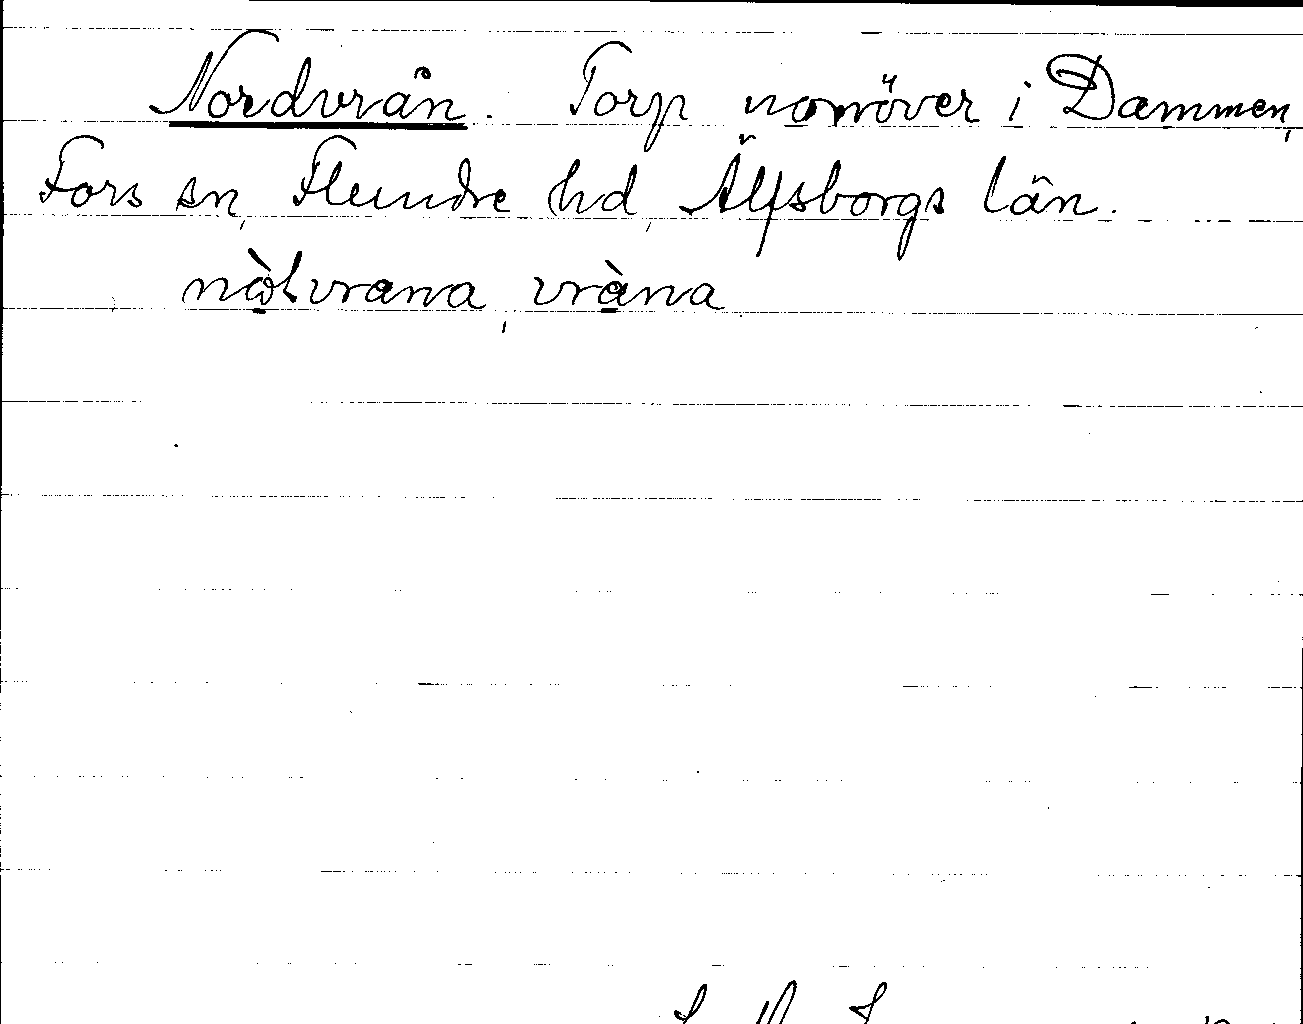 Nordvrån. Torp norröver i Dammen,
Fors sn, Flundre hd, Älfsborgs län.
nòlvrana, vràna